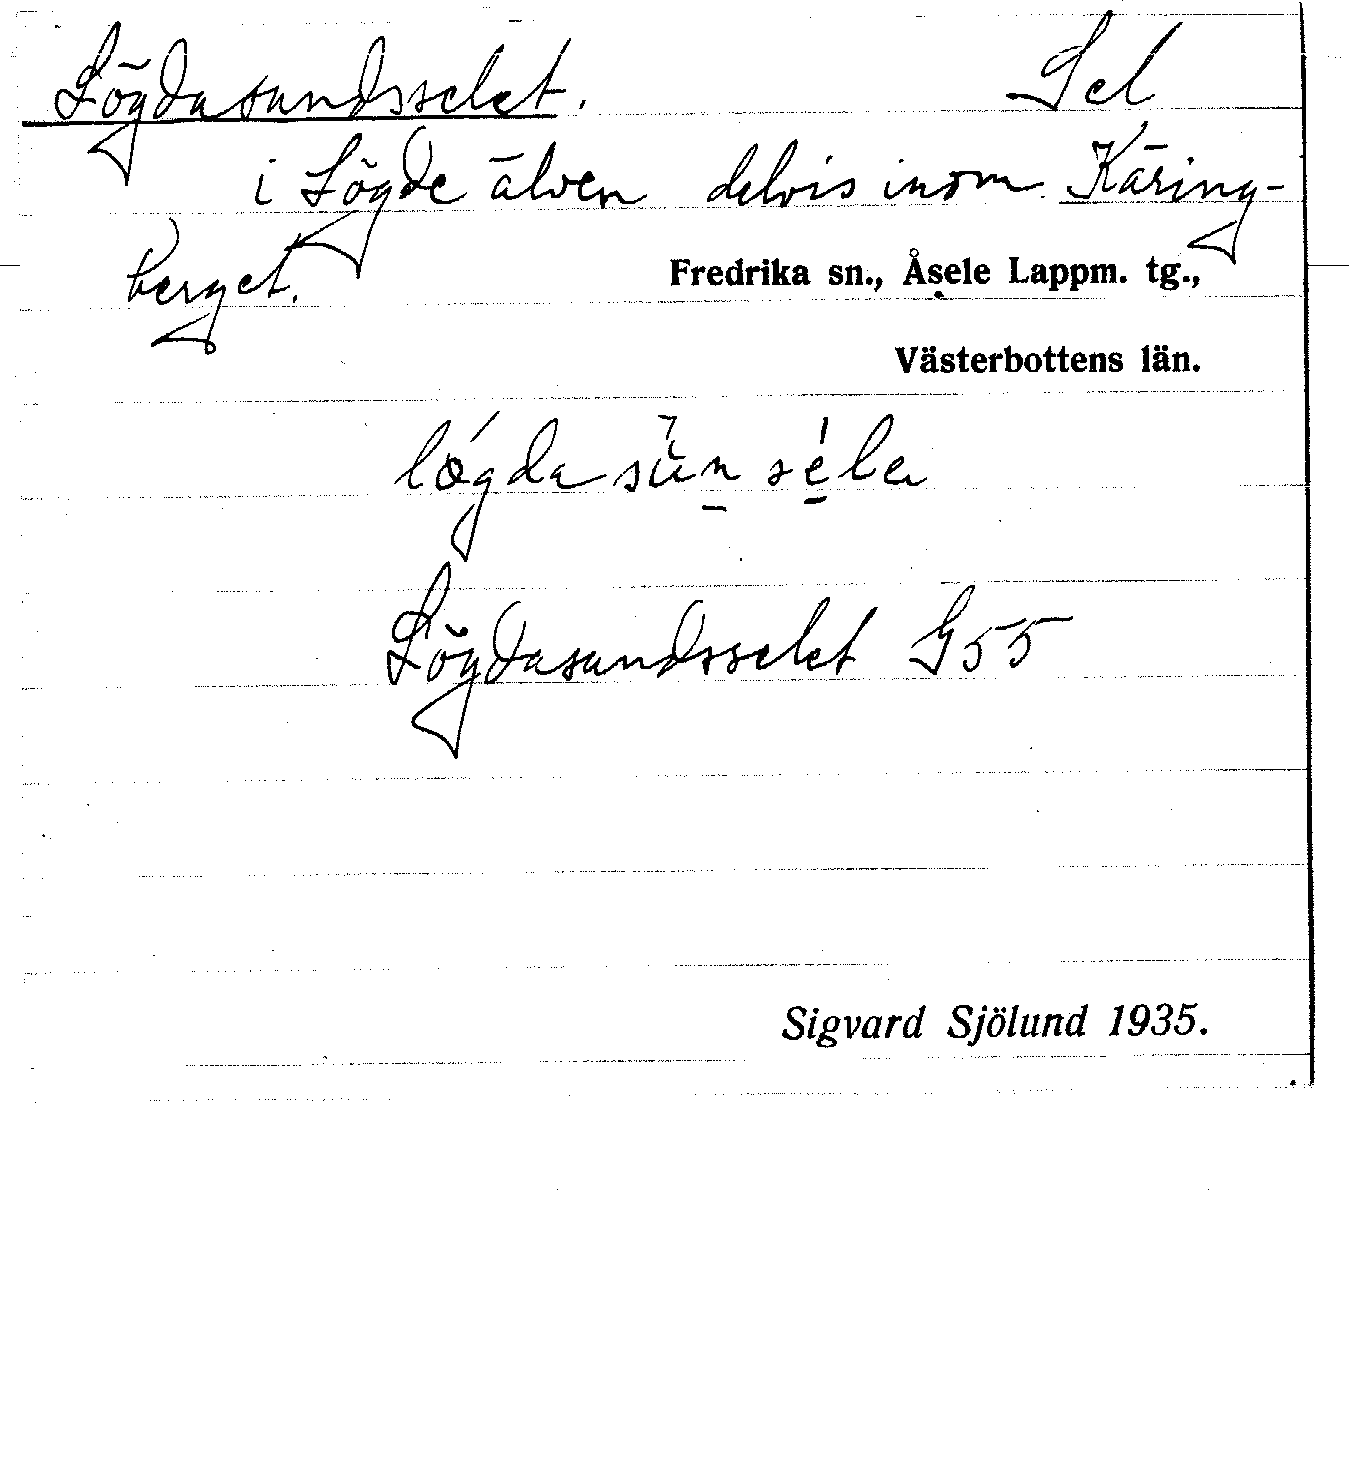 Lögdasundsselet. Sel
i Lögde älven delvis inom Käring-
berget.
Fredrika sn., Åsele Lappm. tg.,
Västerbottens län.
Lögdasundsselet G55
Sigvard Sjölund 1935.